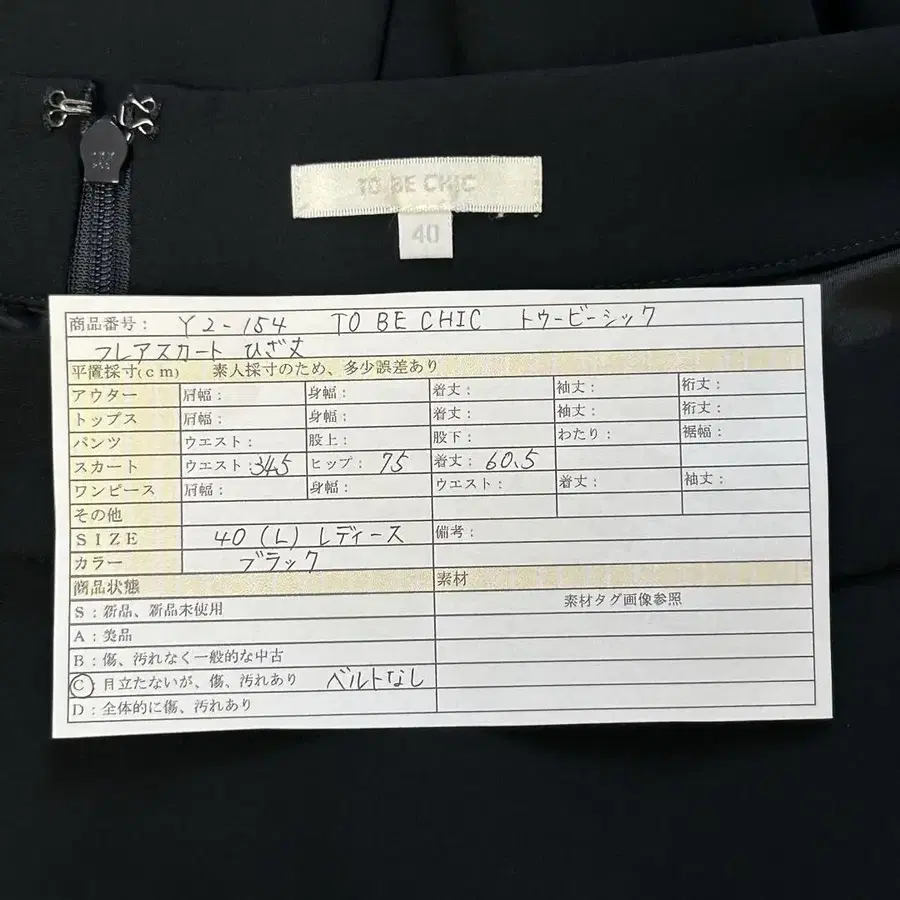 TO BE CHIC
40
商品番号： Y2-154 TO BE CHIC トゥービーシック
フレアスカート ひざ丈
平置採寸(cm) 素人採寸のため、多少誤差あり
アウター 肩幅： 身幅： 着丈： 袖丈： 裄丈：
トップス 肩幅： 身幅： 着丈： 袖丈： 裄丈：
パンツ ウエスト： 股上： 股下： わたり： 裾幅：
スカート ウエスト：34.5 ヒップ： 75 着丈： 60.5
ワンピース 肩幅： 身幅： ウエスト： 着丈： 袖丈：
その他
SIZE 40 (L) レディース 備考：
カラー ブラック
商品状態 素材
S：新品、新品未使用 素材タグ画像参照
A：美品
B：傷、汚れなく一般的な中古
C 目立たないが、傷、汚れあり ベルトなし
D：全体的に傷、汚れあり